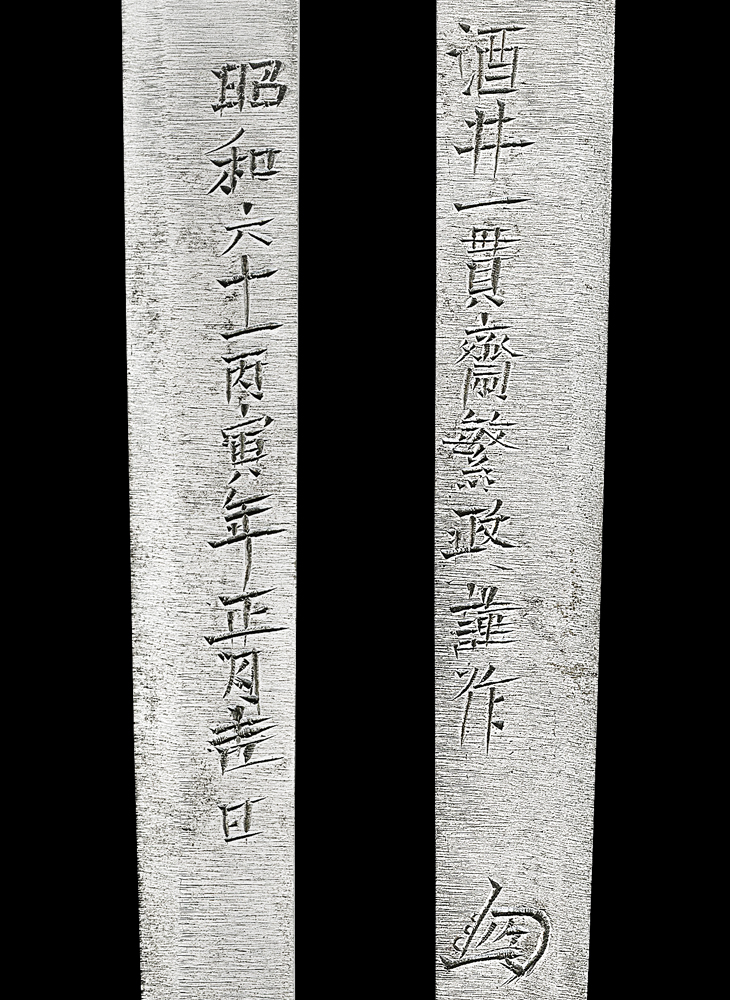 酒井一貫齋繁政謹作
昭和六十一丙寅年正月日